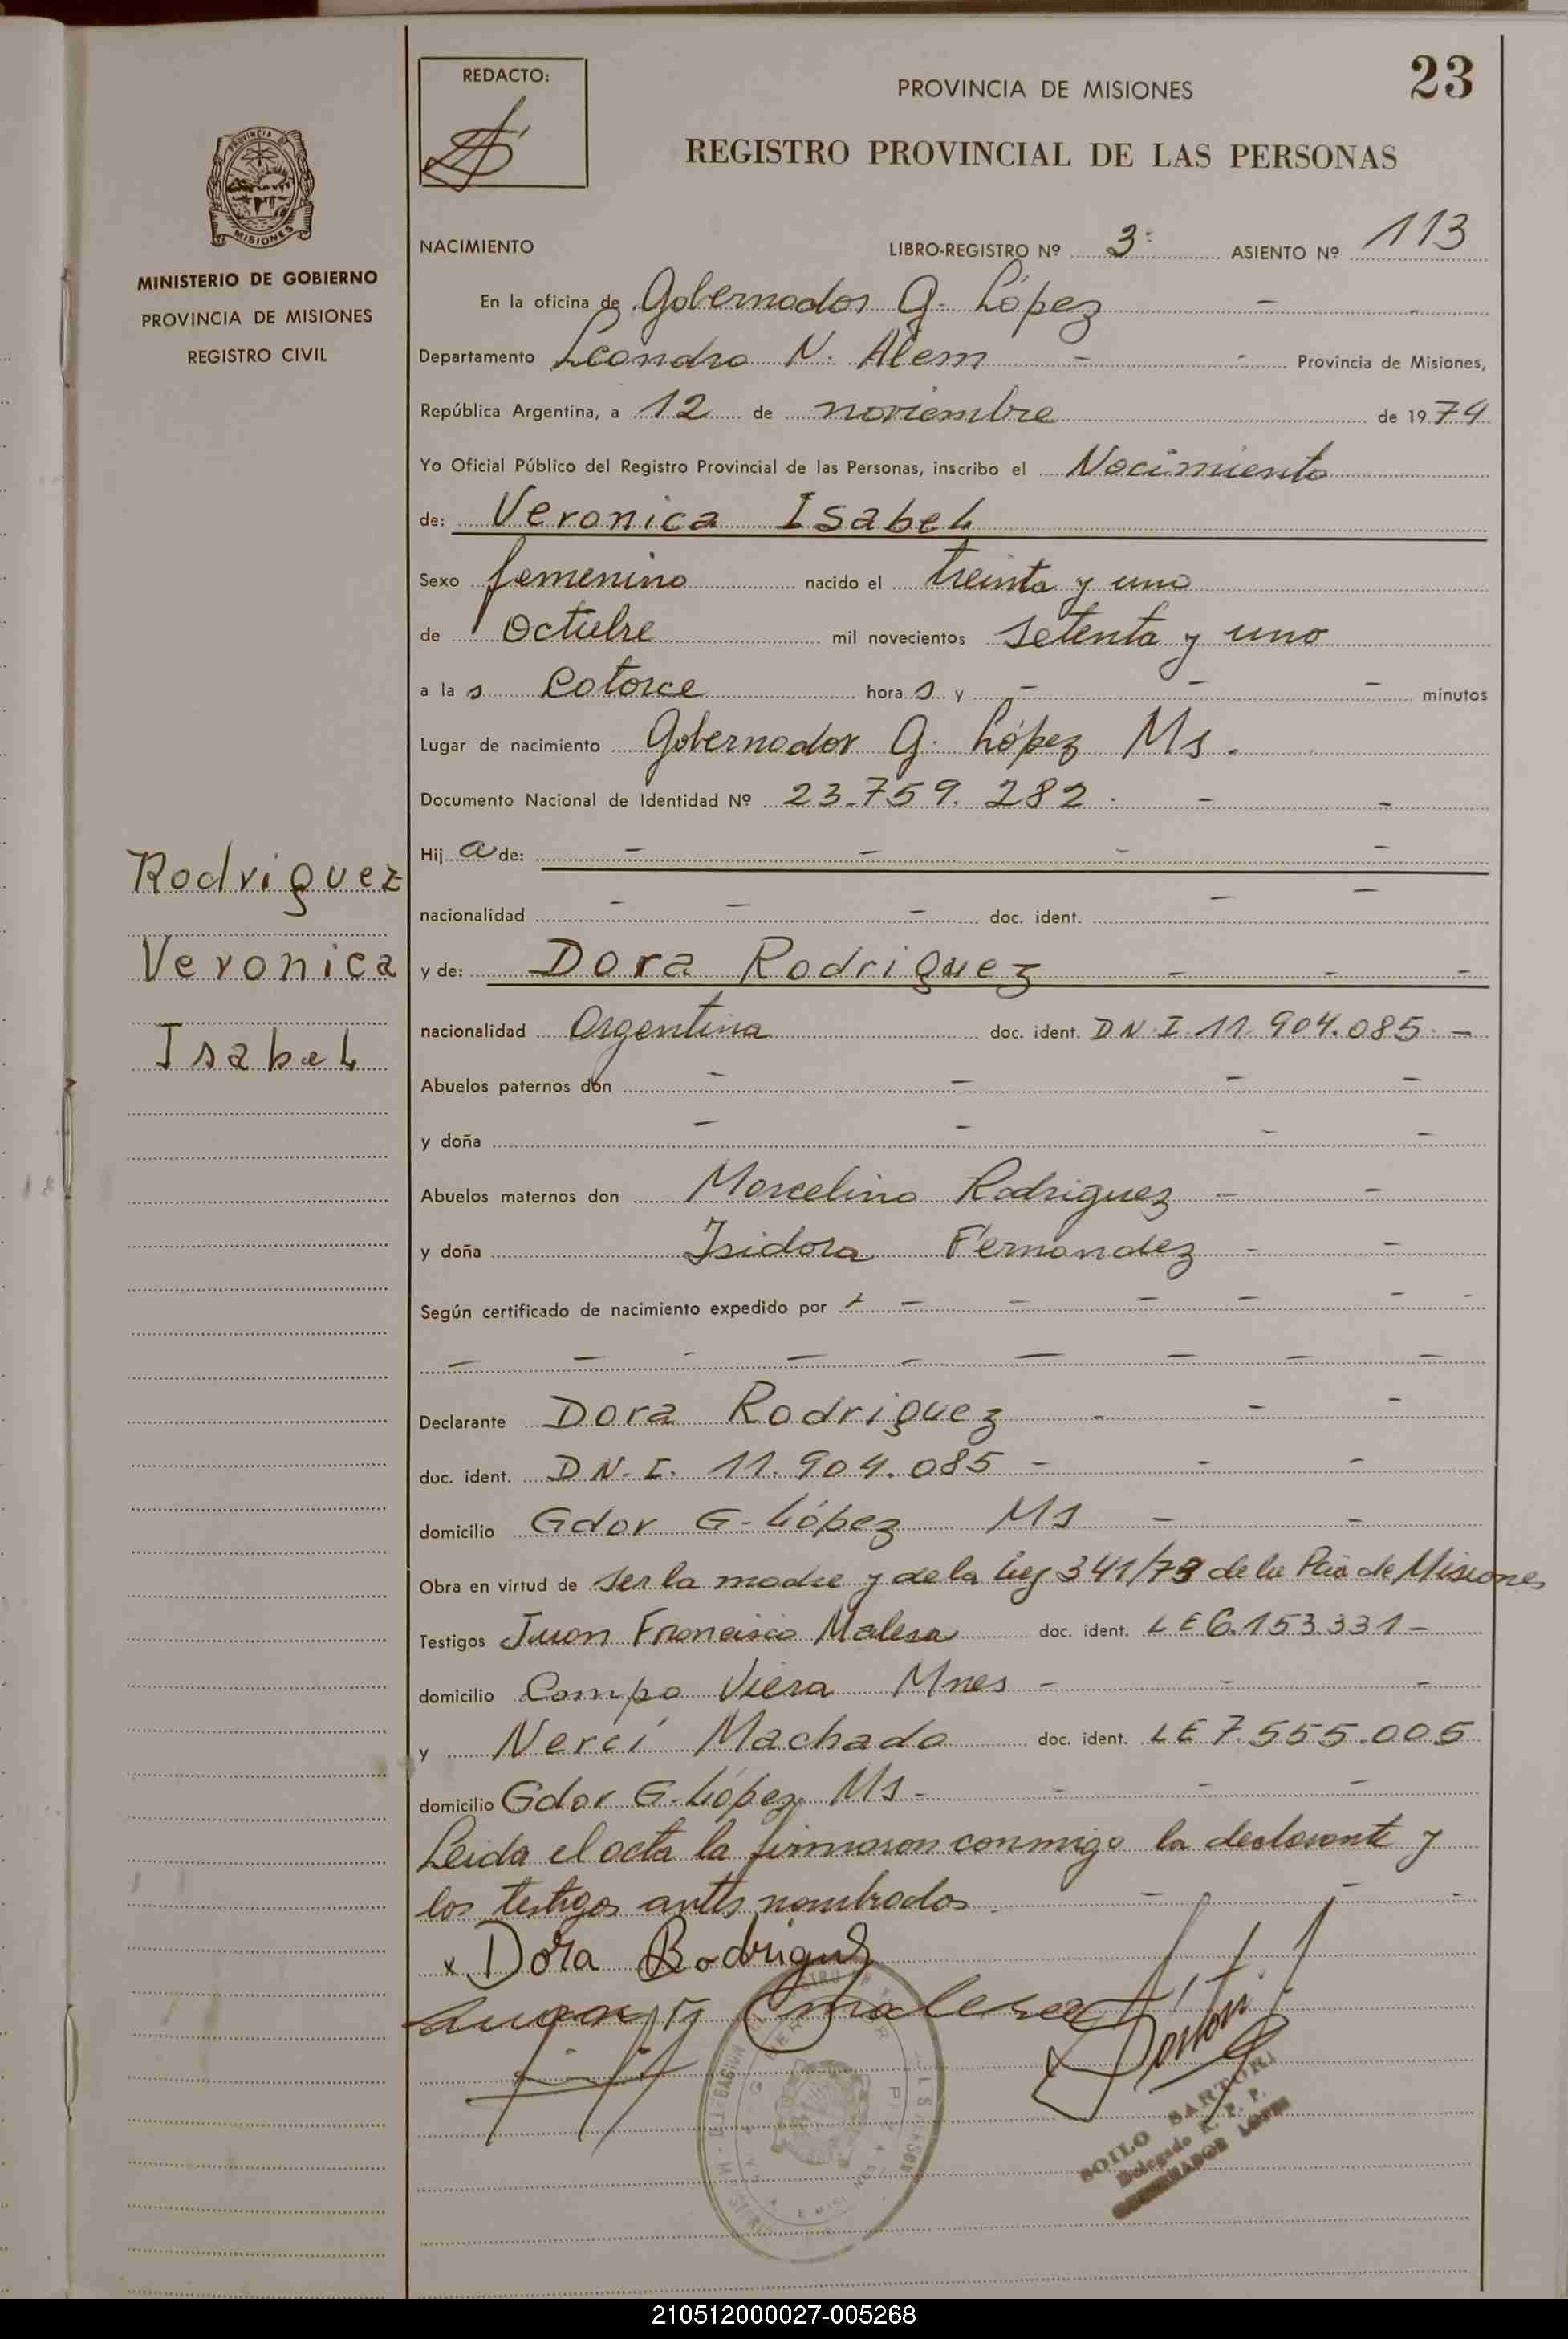 REDACTO:
PROVINCIA DE MISIONES
23
REGISTRO PROVINCIAL DE LAS PERSONAS
PROVINCIA DE
MISIONES
MINISTERIO DE GOBIERNO
PROVINCIA DE MISIONES
REGISTRO CIVIL
NACIMIENTO LIBRO-REGISTRO Nº 3: ASIENTO Nº 113
En la oficina de Gobernador G. López -
Departamento Leandro N. Alem - - Provincia de Misiones,
República Argentina, a 12 de noviembre de 1974
Yo Oficial Público del Registro Provincial de las Personas, inscribo el Nacimiento
de: Veronica Isabel
Sexo femenino nacido el treinta y uno
de Octubre mil novecientos setenta y uno
a las catorce horas y - - - minutos
Lugar de nacimiento Gobernador G. López Ms.
Documento Nacional de Identidad Nº 23.759.282. - -
Hija de: - - - -
nacionalidad - - - doc. ident. - -
y de: Dora Rodriguez - - -
nacionalidad Argentina doc. ident. D N. I. 11.904.085. -
Rodriguez
Veronica
Isabel
Abuelos paternos don - - - -
y doña - - - -
Abuelos maternos don Marcelino Rodriguez - -
y doña Isidora Fernandez - -
Según certificado de nacimiento expedido por - - - - - - -
- - - - - - - - -
Declarante Dora Rodriguez - - -
doc. ident. D N. I. 11.904.085 - - -
domicilio Gdor G. López Ms - -
Obra en virtud de ser la madre y de la Ley 341/73 de la Pcia de Misiones
Testigos Juan Francisco Malesa doc. ident. L E 6.153.331 -
domicilio Campo Viera Mnes - - -
y Nercí Machado doc. ident. L E 7.555.005
domicilio Gdor G. López Ms - - - -
Leida el acta la firmaron conmigo la declarante y
los testigos antes nombrados. - - -
x Dora Rodriguez
SOILO SARTORI
Delegado R. P. P.
GOBERNADOR LOPEZ
210512000027-005268